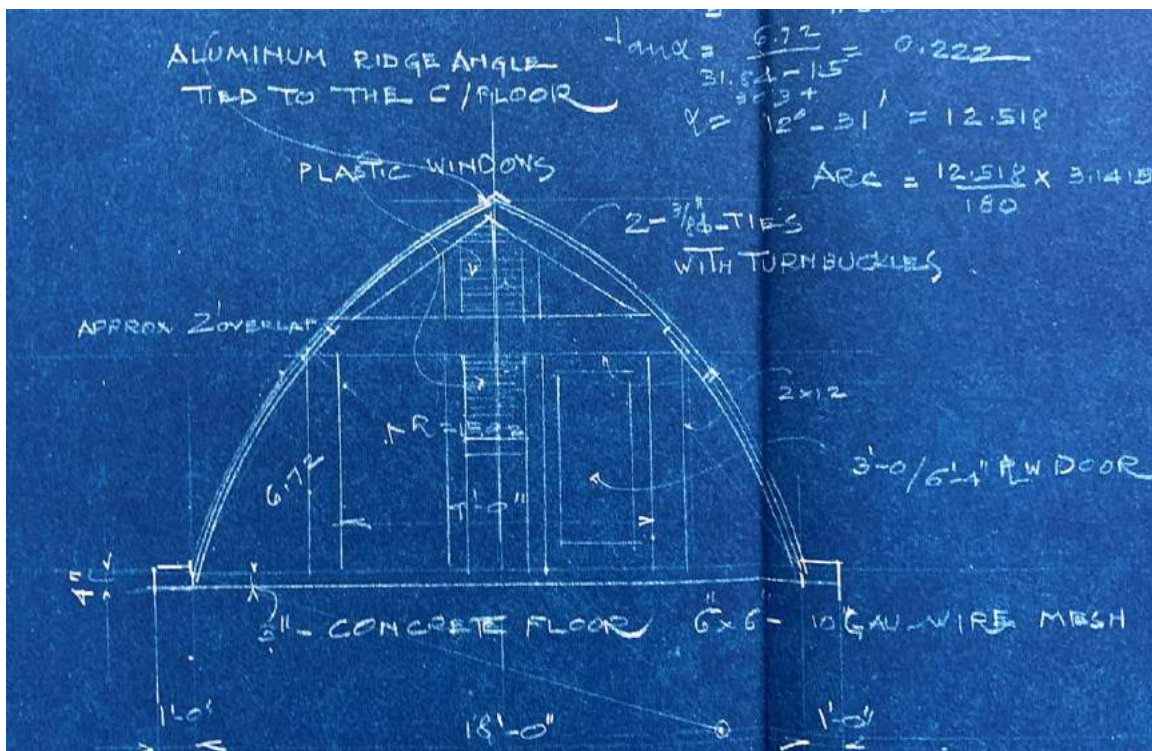 ALUMINUM RIDGE ANGLE
TIED TO THE C/FLOOR
tanα = 6.72 = 0.222
31.84-1.5
α = 12°-31' = 12.518
ARC = 12.518 × 3.1415
180
PLASTIC WINDOWS
2-3/8"ϕ-TIES
WITH TURNBUCKLES
APPROX 2' OVERLAP
2x12
6.72
3'-0/6'-4" DOOR
4"
3"- CONCRETE FLOOR 6"x6"- 10 GAU-WIRE MESH
1'-0" 18'-0" 1'-0"